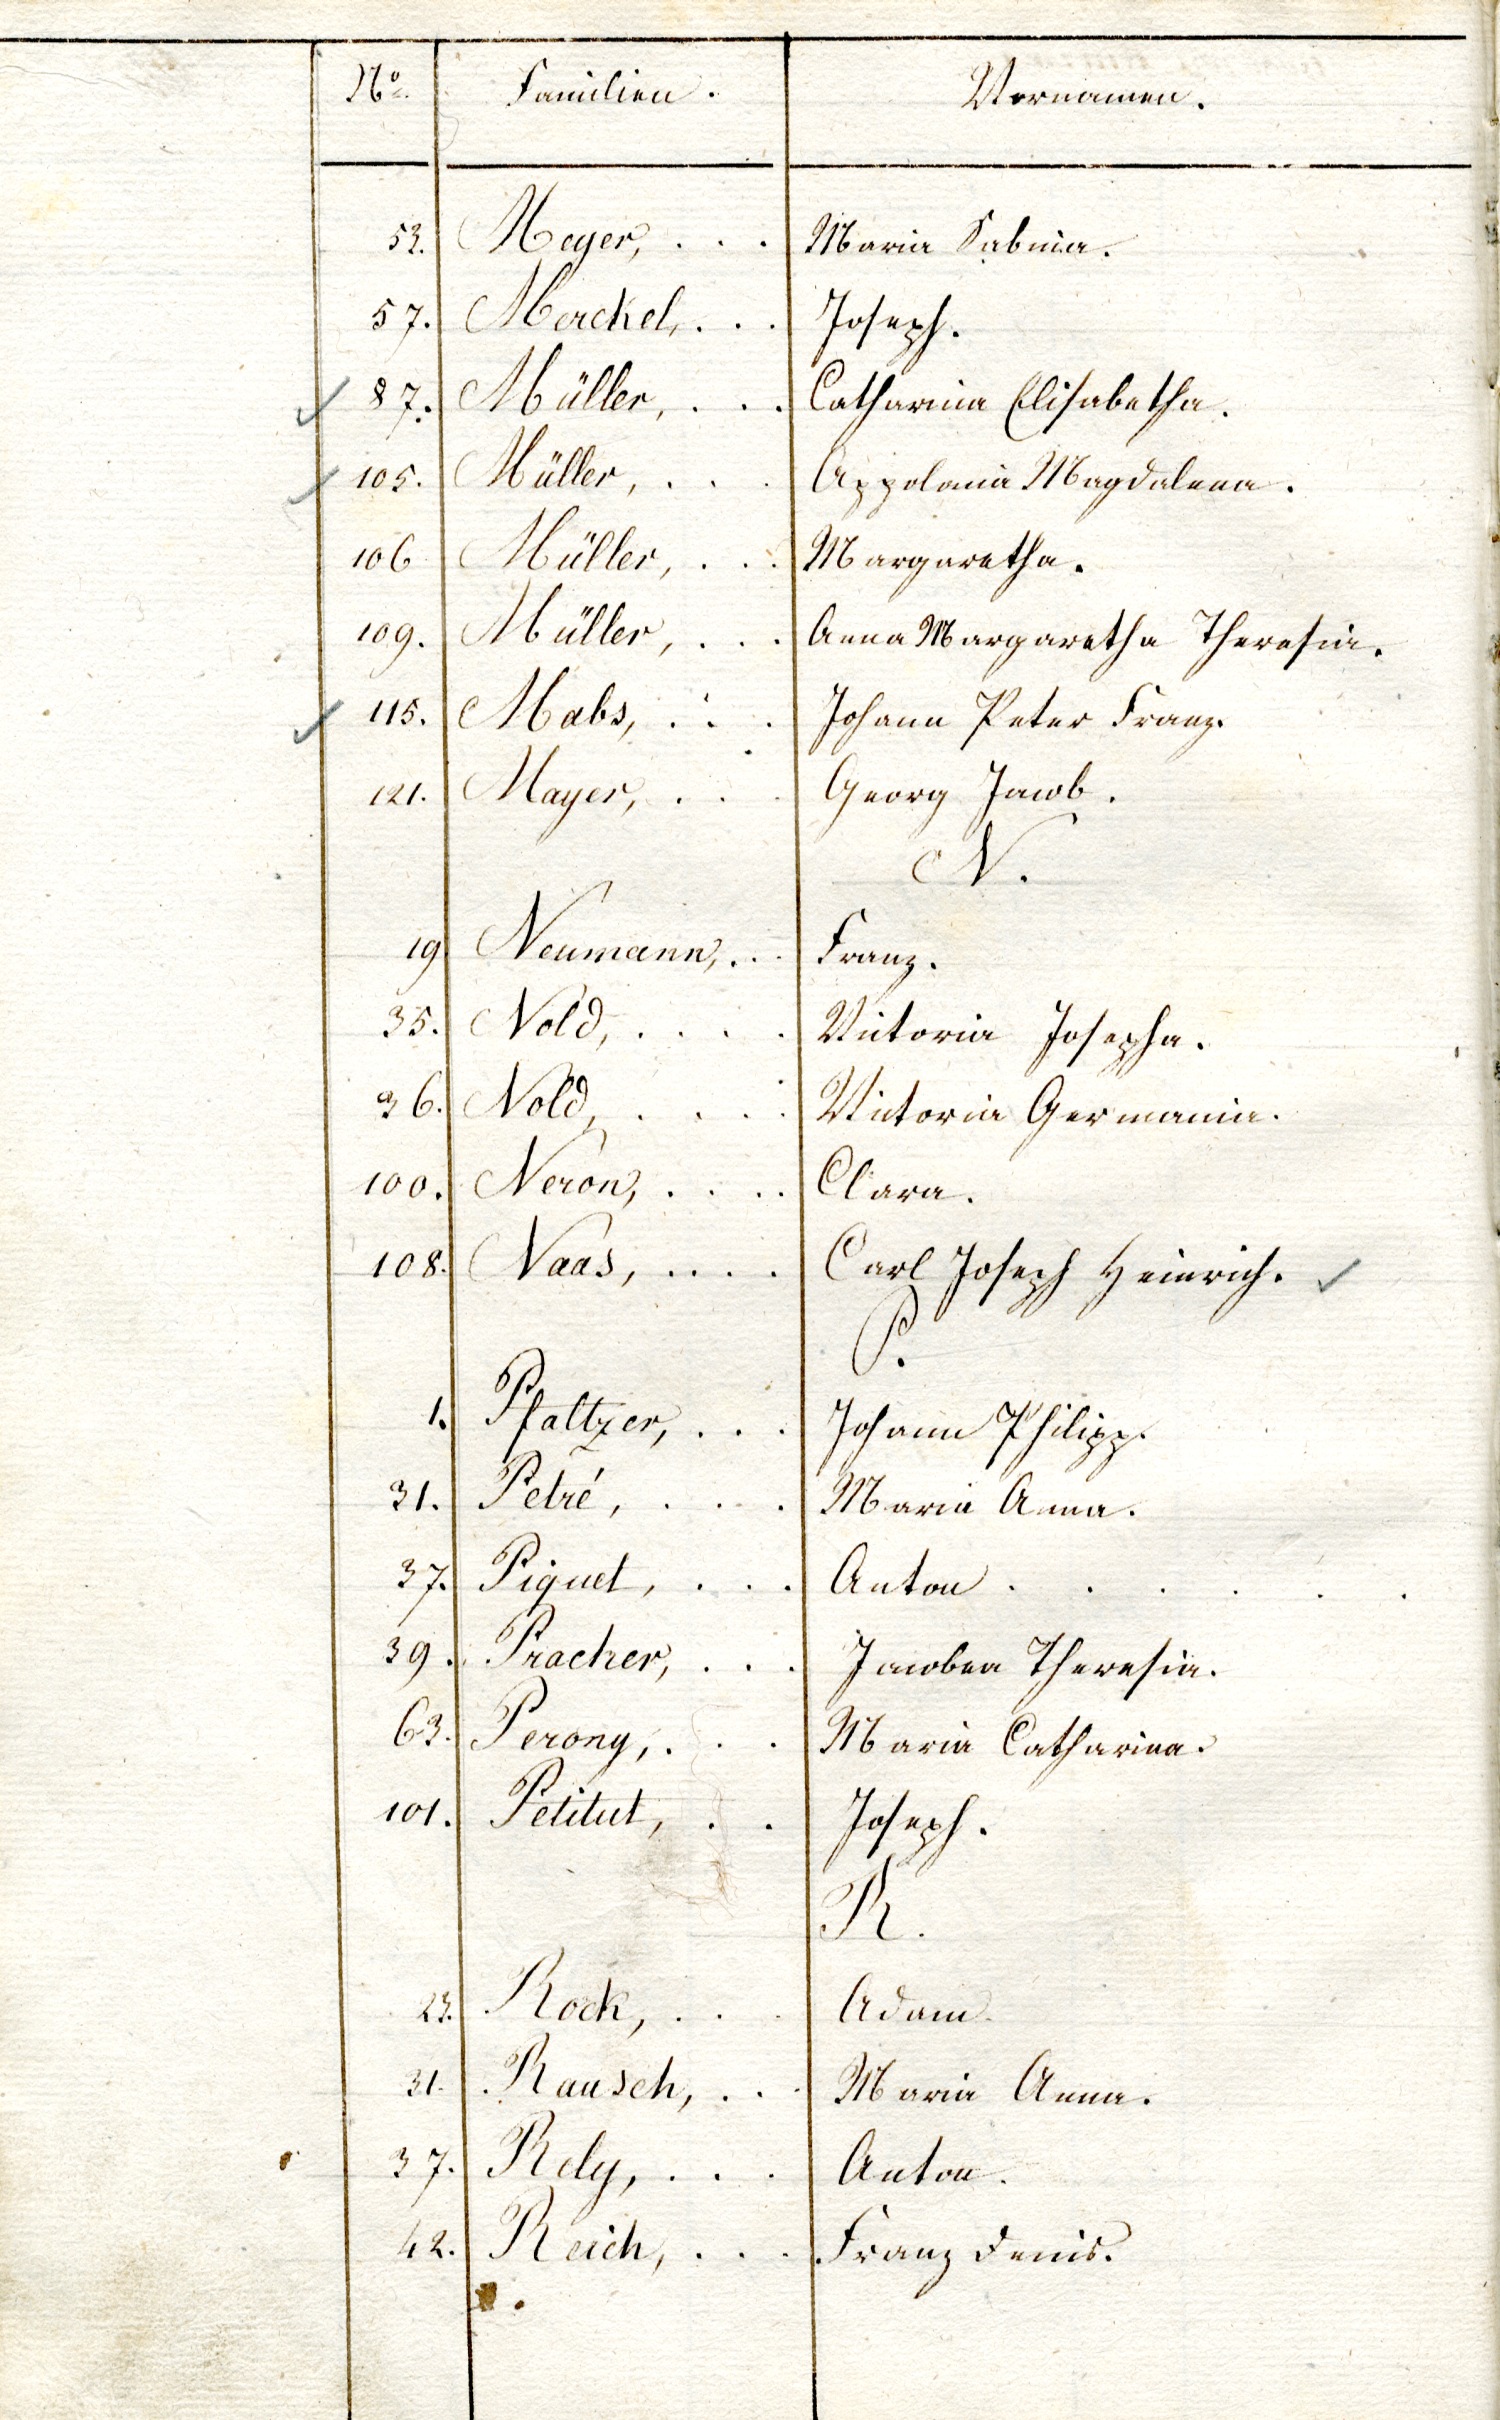 No. Familien. Vornamen.
53. Meyer, . . . Maria Sabina.
57. Merckel, . . . Joseph.
87. Müller, . . . Catharina Elisabetha.
105. Müller, . . . Appolonia Magdalena.
106 Müller, . . . Margaretha.
109. Müller, . . . Anna Margaretha Theresia.
115. Mabs, . . . Johann Peter Franz.
121. Mayer, . . . Georg Jacob.
N.
19 Neumann, . . . Franz.
35. Nold, . . . . Victoria Josepha.
36. Nold, . . . . Victoria Germania.
100. Neron, . . . . Clara.
108. Naas, . . . . Carl Joseph Heinrich.
P.
1. Pfaltzer, . . . Johann Philipp.
31. Petré, . . . Maria Anna.
37. Piquet, . . . Anton . . . . . .
39. Pracher, . . . Jacobea Theresia.
63. Perony, . . . Maria Catharina.
101. Petitut, . . Joseph.
R.
23. Rock, . . . Adam.
31. Rausch, . . . Maria Anna.
37. Rely, . . . Anton.
42. Reich, . . . Franz Denis.